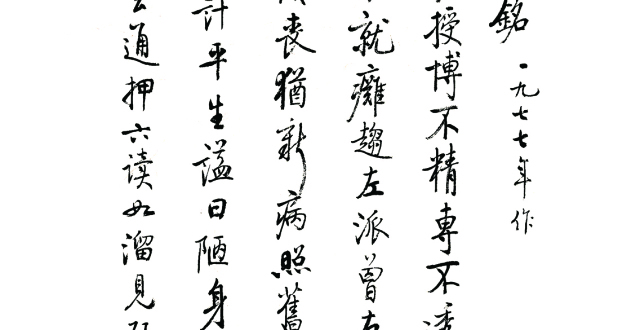 銘 一九七七年作
授博不精專不
就癱趨左派曾
喪猶新病照舊
計平生謚曰陋身
通押六读如溜見